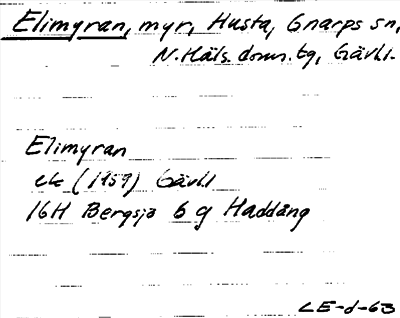 Elimyran, myr, Husta, Gnarps sn,
N.Häls. doms. tg, Gävl.
Elimyran
ek (1959) Gävl
16H Bergsjö 6 g Haddäng
LE-d-63